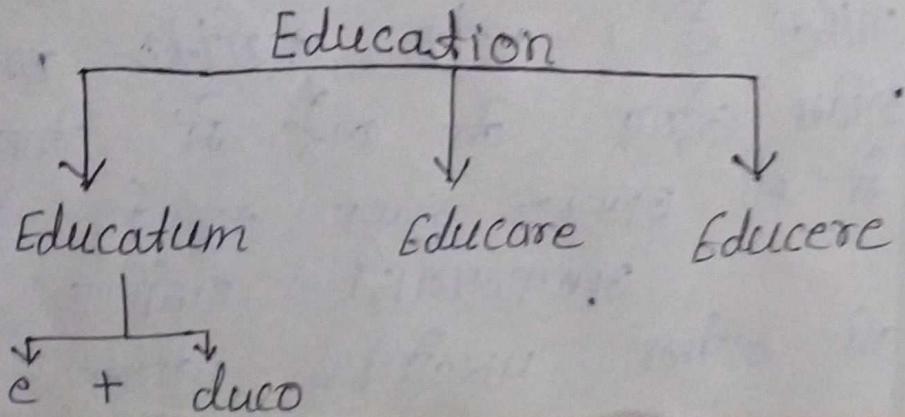 Education
Educatum Educare Educere
e + duco